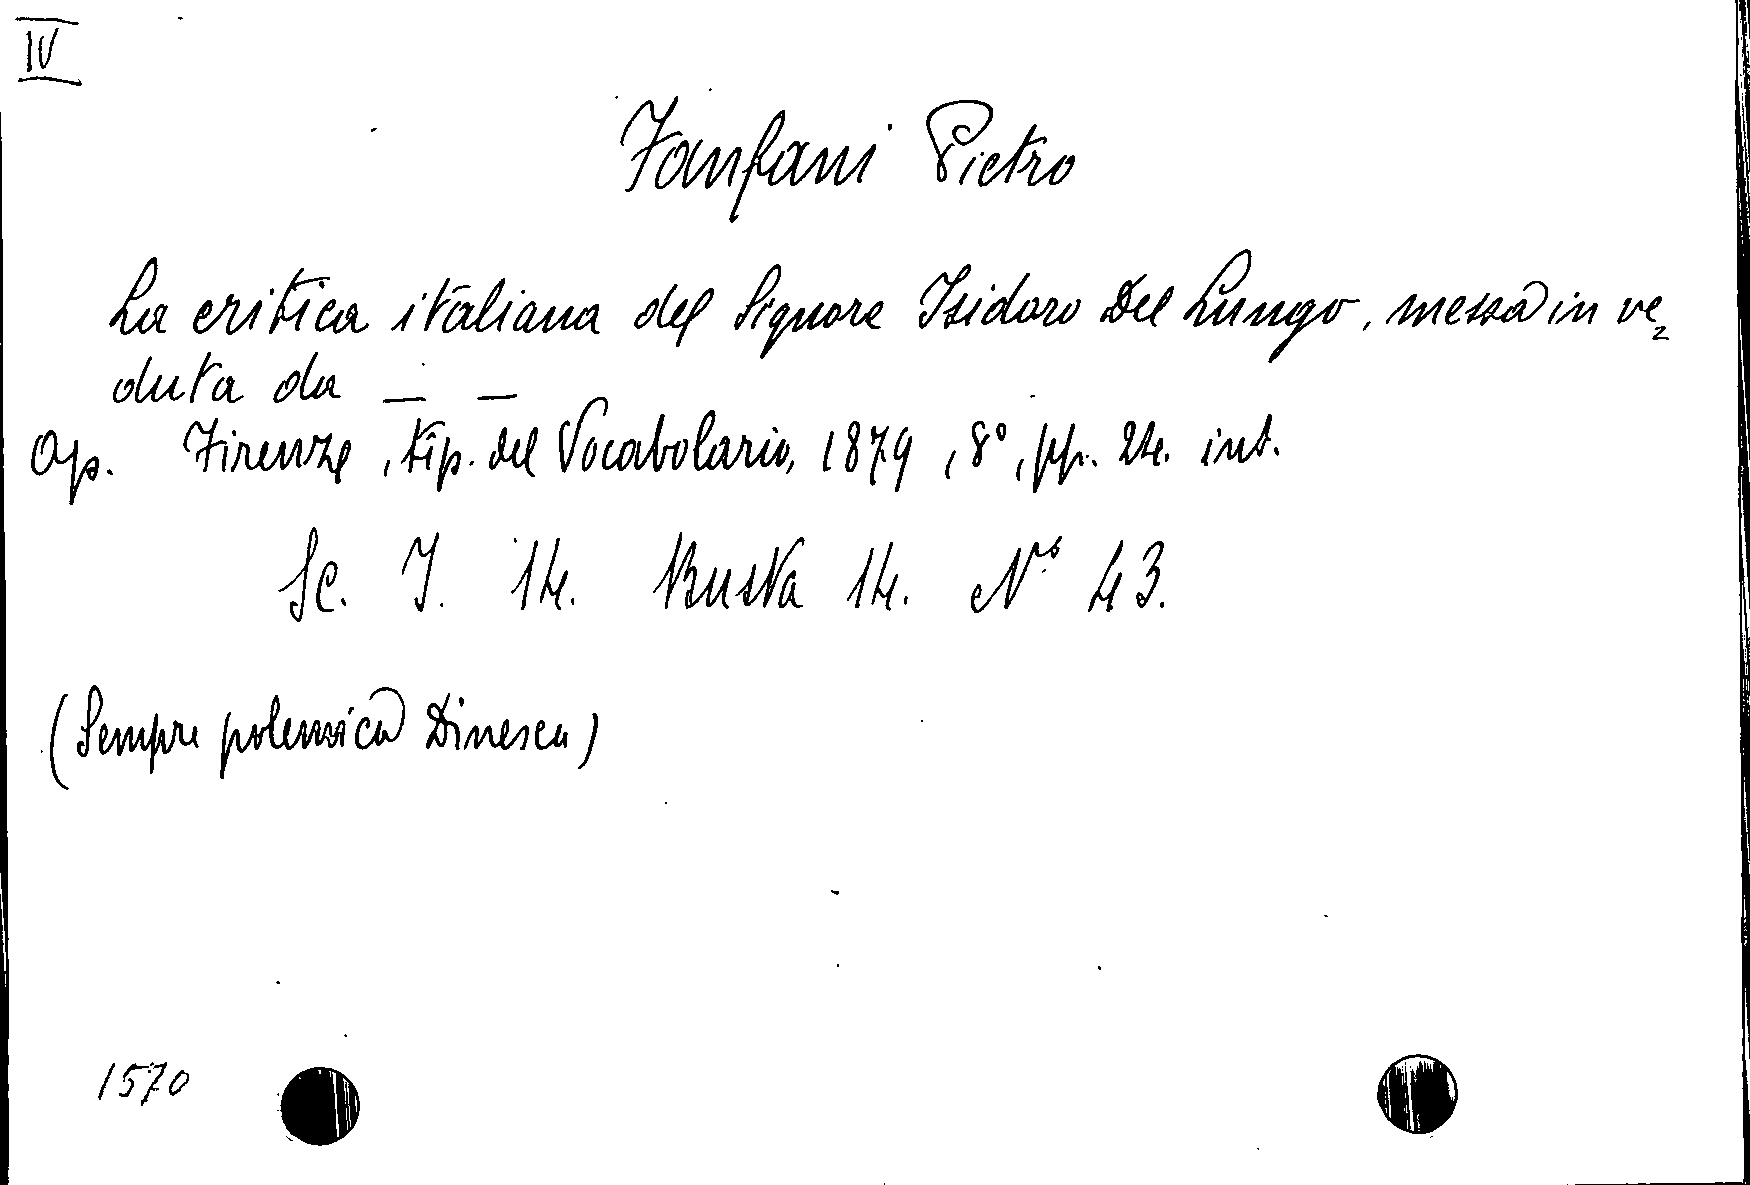 IV
Fanfani Pietro
La critica italiana del Signore Isidoro Del Lungo, messa in ve=
duta da _ _
Op. Firenze, tip. del Vocabolario, 1879, 8°, pp. 24. int.
Sc. I. 14. Busta 14. N° 43.
(Sempre polemica Dinesca)
1570